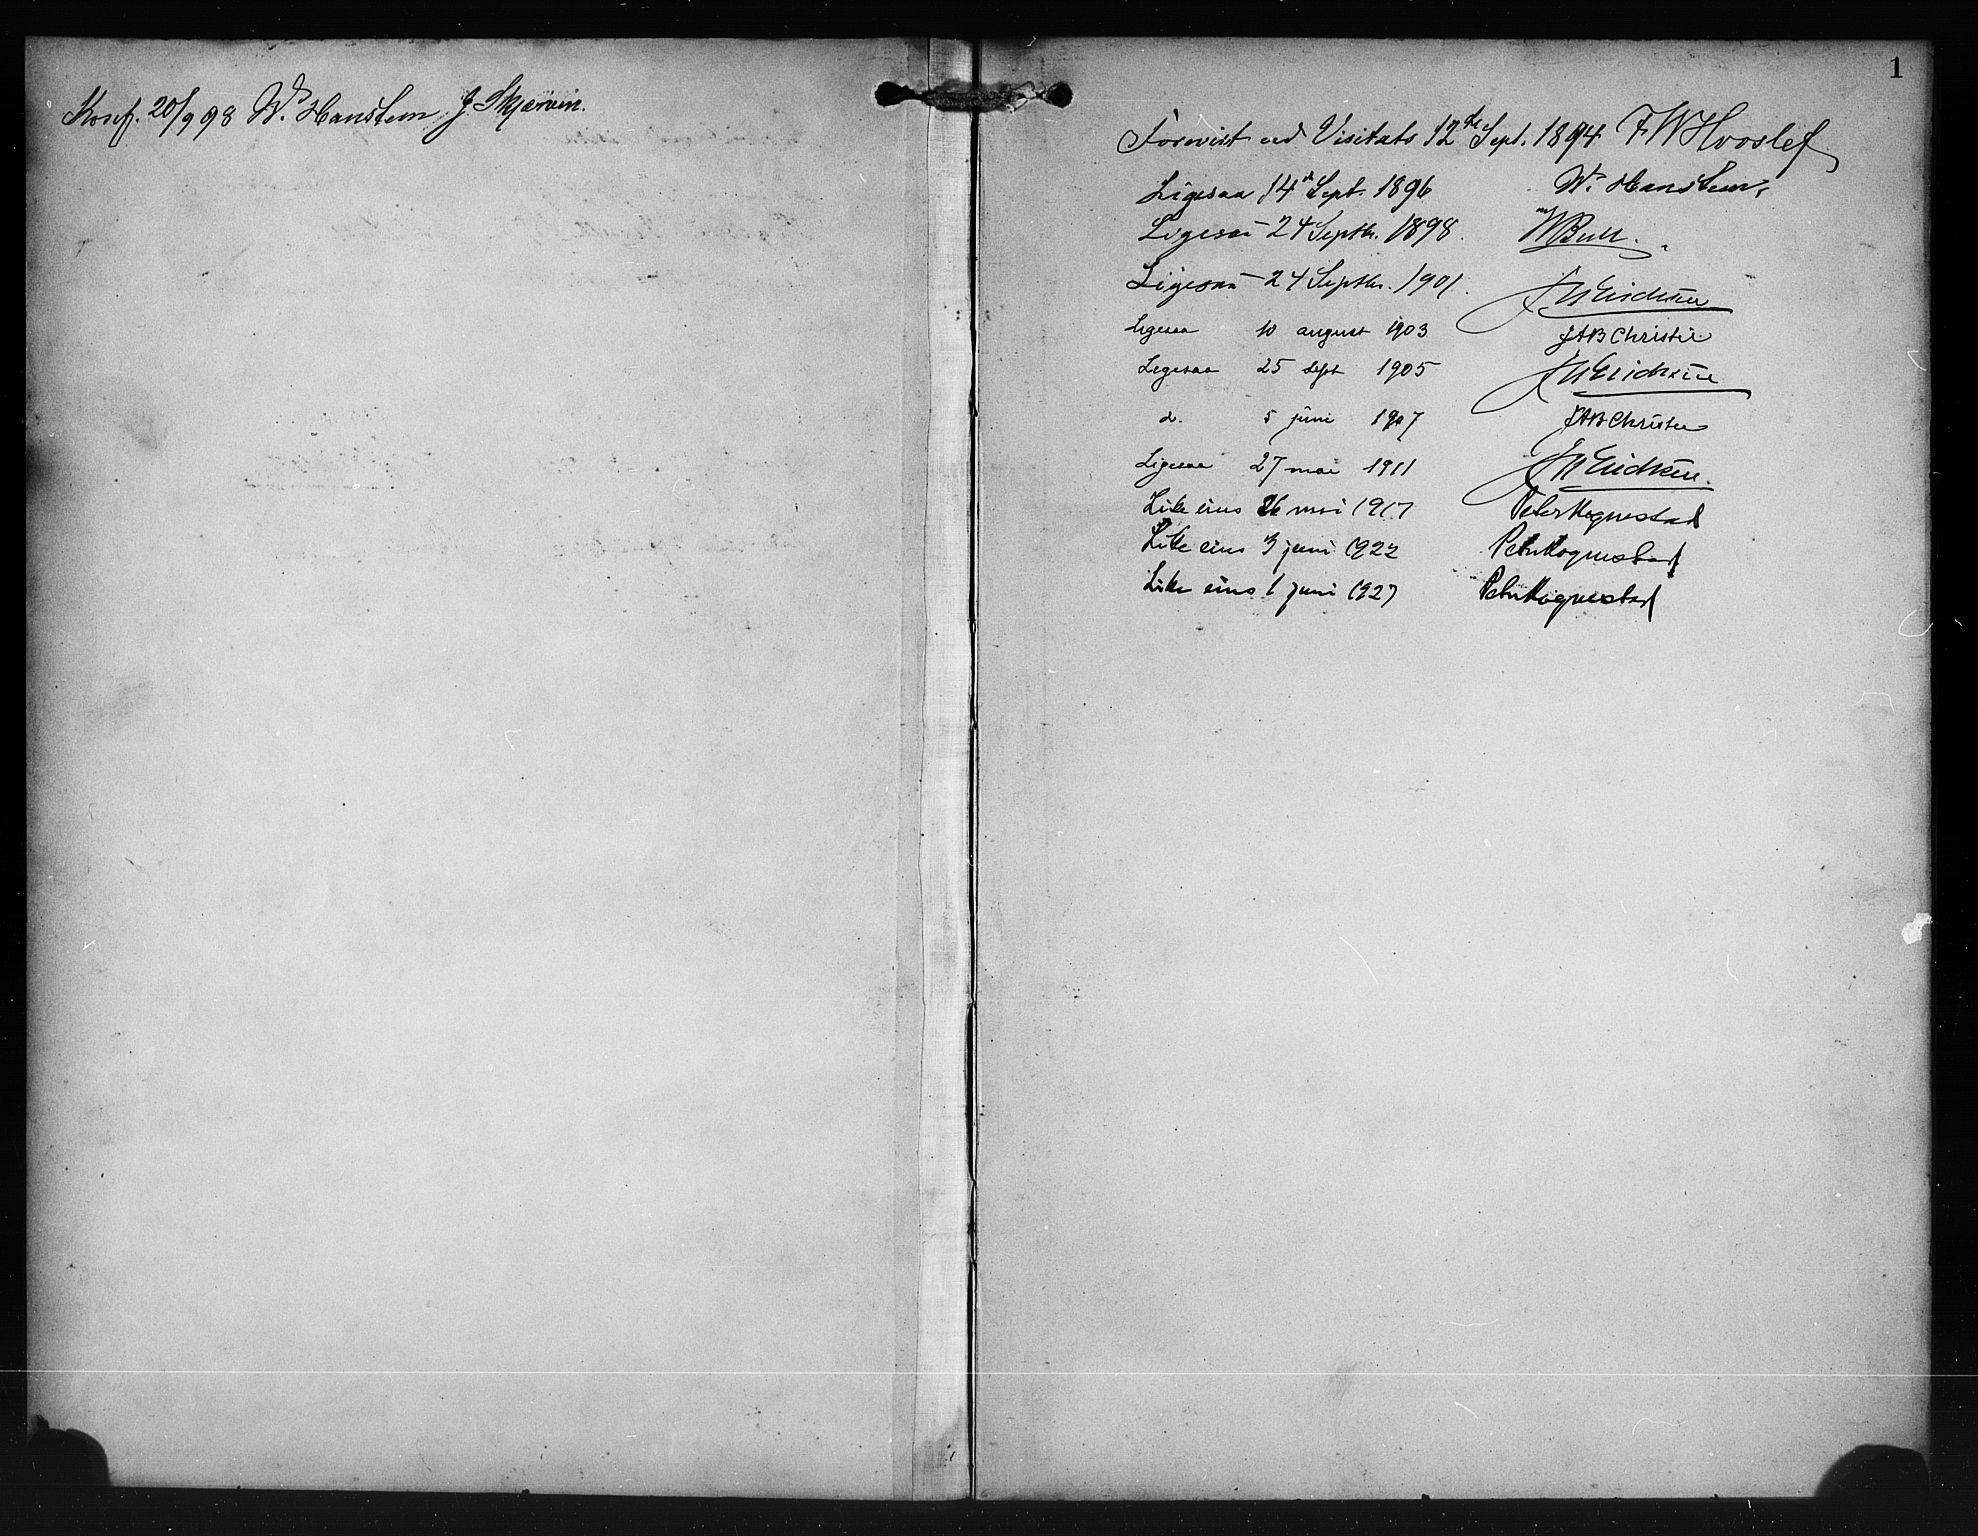 Konf. 20/9 98 W. Hanstem J. Skjerven.
1
Forevist ved Visitats 12te Sept. 1894 FWHvoslef
Ligesaa 14d Sept. 1896 W. Hanstem,
Ligesaa – 24 Septbr. 1898. WBull.
Ligesaa – 24 Septbr. 1901. JWErichsen
Ligesaa 10 august 1903 JAB Christie
Ligesaa 25 sept 1905 JWErichsen
d. 5 juni 1907 JAB Christie
Ligesaa 27 mai 1911 JWErichsen.
Like eins 26 mai 1917 Peter Hognestad
Like eins 3 juni 1922 Peter Hognestad
Like eins 1 juni 1927 Peter Hognestad